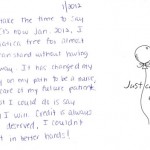 1/2012
take the time to say
it's now Jan. 2012, I
time for almost
can stand without having
away. It has changed my
on my path to be a nurse,
care of my future patients
I could do is say
I win. Credit is always
deserved, I couldn't
in better hands!
Just c